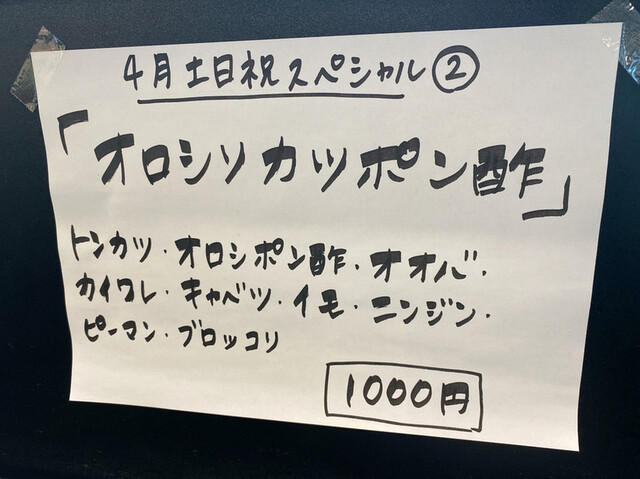 4月土日祝スペシャル②
「オロシソカツポン酢」
トンカツ・オロシポン酢・オオバ・
カイワレ・キャベツ・イモ・ニンジン・
ピーマン・ブロッコリ
1000円